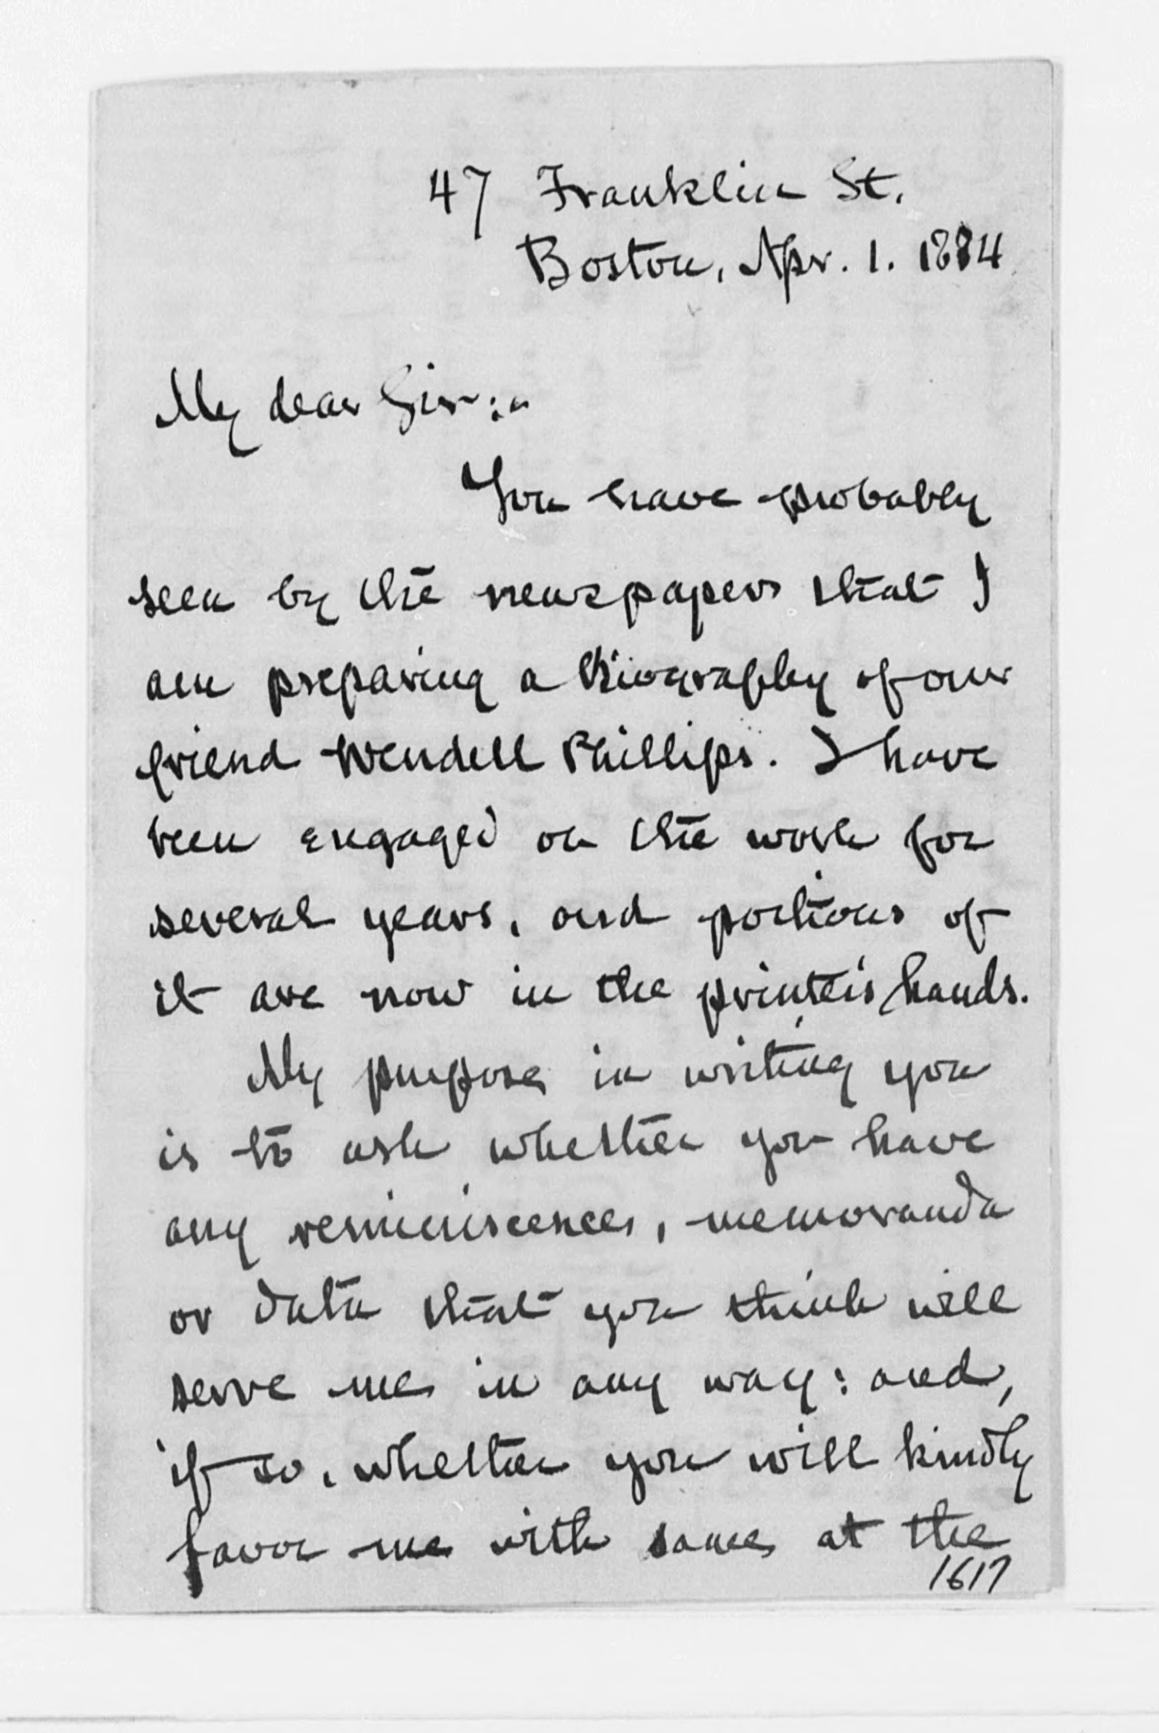 47 Franklin St.
Boston, Apr. 1. 1884
My dear Sir:-
You have probably
seen by the newspapers that I
am preparing a Biography of our
friend Wendell Phillips. I have
been engaged on the work for
several years, and portions of
it are now in the printer's hands.
My purpose in writing you
is to ask whether you have
any reminiscences, memoranda
or data that you think will
serve me in any way: and,
if so, whether you will kindly
favor me with same at the
1617